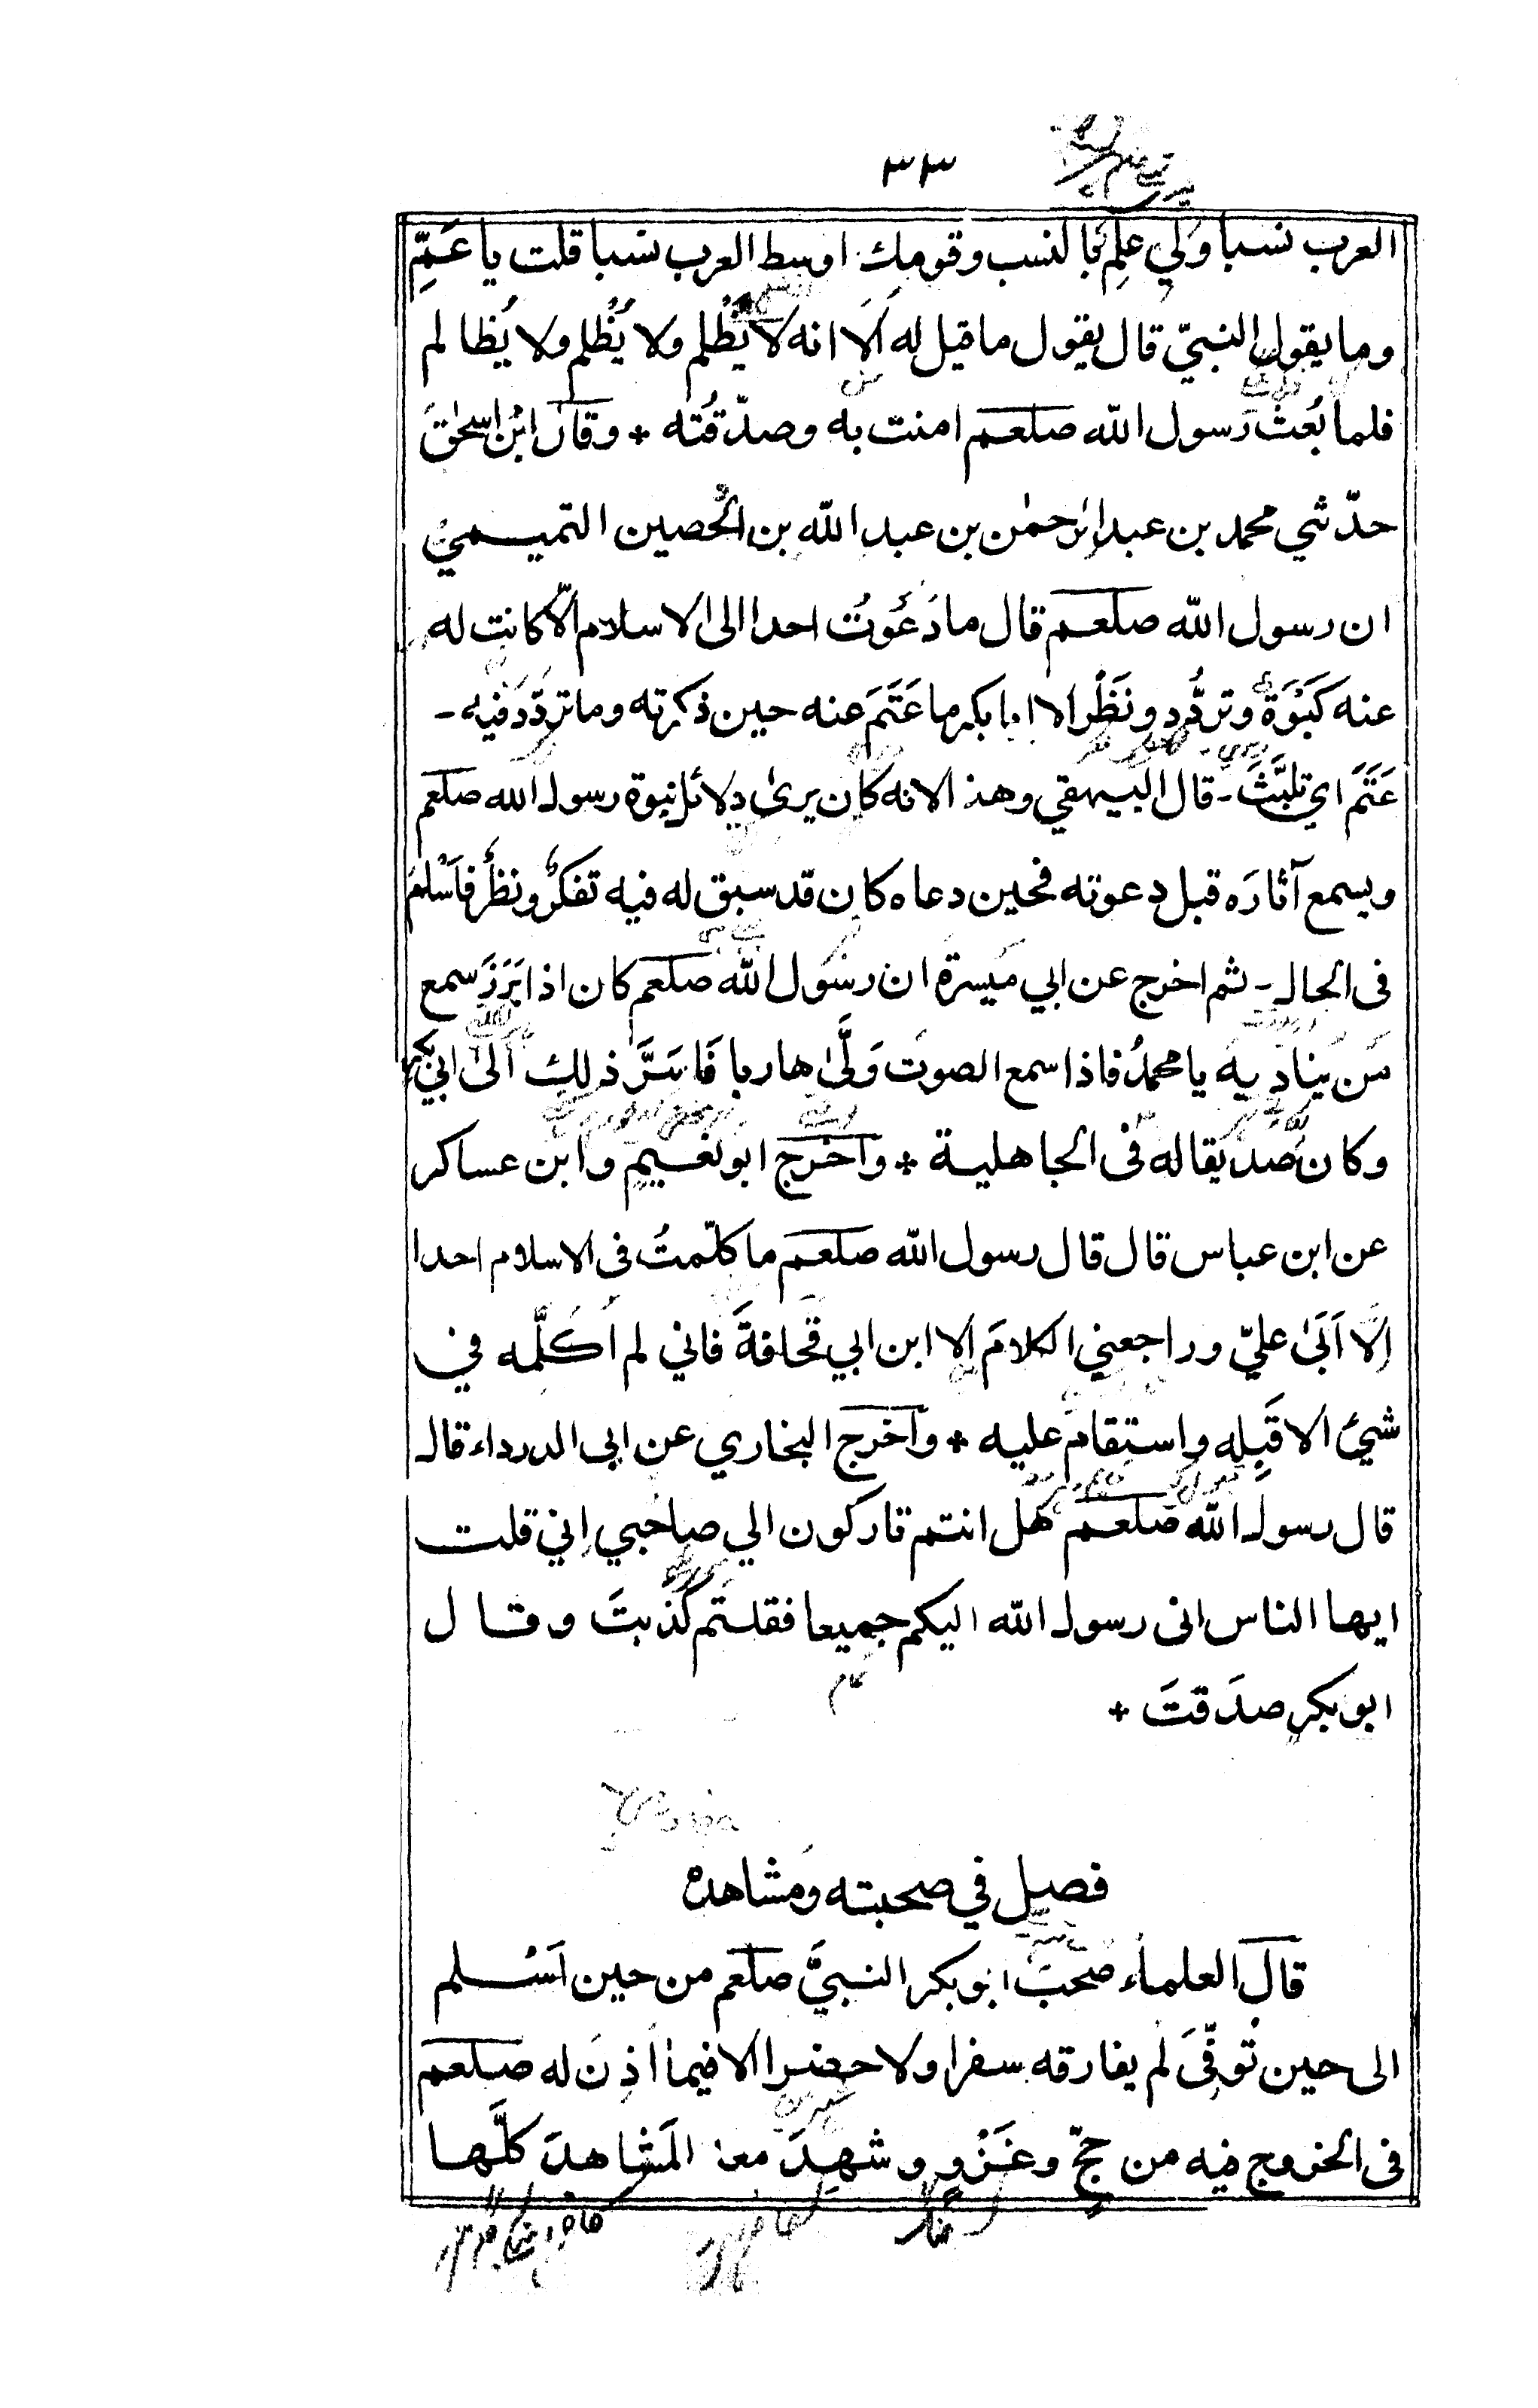 ٣٣
العرب نسبا ولي علم بالنسب وقومك اوسط العرب نسبا قلت يا عَمِّ
وما يقول النبيّ قال يقول ما قيل له اَلا انه لا يَظْلم ولا يُظْلم ولا يُظالم
فلما بُعث رسول الله صلعم امنت به وصدّقتُه * وقال ابن اسحٰق
حدّثني محمد بن عبد الرحمٰن بن عبد الله بن الحُصين التميمي
ان رسول الله صلعم قال ما دَعَوتُ احدا الى الاسلام الّا كانت له
عنه كَبْوَةٌ وتردُّد ونَظَر الا ابا بكر ما عَتَمَ عنه حين ذكرته وما تردّدَ فيه -
عَتَمَ اي تلبَّثَ - قال البيهقي وهذا لانه كان يرىٰ دلائل نبوة رسول الله صلعم
ويسمع آثارَه قبل دعوته فحين دعاه كان قد سبق له فيه تفكرٌ ونظرٌ فاَسْلمَ
فى الحال - ثم اخرج عن ابي ميسرة ان رسول الله صلعم كان اذا بَرَزَ سمع
مَن يناديه يا محمدُ فاذا سمع الصوت وَلَّىٰ هاربا فَاَسَرَّ ذلك الىٰ ابي بكر
وكان صديقا له فى الجاهلية * وَاَخرج ابو نعيم وابن عساكر
عن ابن عباس قال قال رسول الله صلعم ما كلّمتُ فى الاسلام احدا
الّا اَبَىٰ عليّ وراجعني الكلامَ الا ابن ابي قحافةَ فاني لم اُكلّمه في
شيئ الا قَبِله واستقام عليه * وَاَخرج البخاري عن ابى الدرداء قال
قال رسول الله صلعم هل انتم تاركون الي صاحبي اِني قلت
ايها الناس انى رسول الله اليكم جميعا فقلتم كذبتَ وقال
ابو بكر صدَقتَ *
فصل في صحبته ومشاهده
قال العلماء صحبَ ابو بكر النبيَّ صلعم من حين اَسْلم
الى حين تُوفّىَ لم يفارقه سفرا ولا حضرا الا فيما اذِن له صلعم
فى الخروج فيه من حجّ وغَزْوٍ وشهِدَ معه المَشاهدَ كلَّها